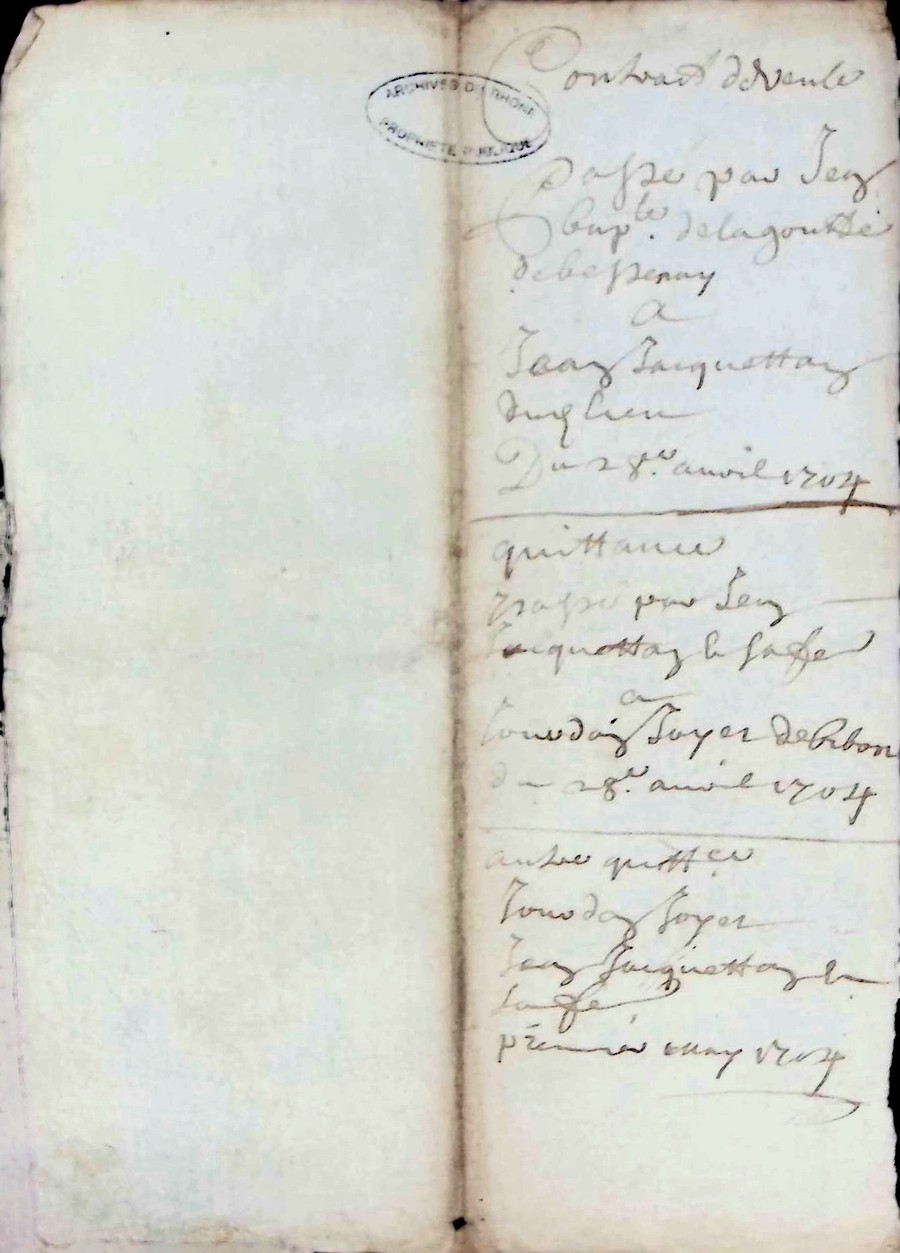 ARCHIVES DU RHONE
PROPRIETE PUBLIQUE
Contract de vente
Passé par Jean
delagoutte
de bessenay
a
Jean Jacquettan
dud lieu
Du 28.e auvil 1704
quittance
passé par Jean
Jacquettan
a
Jourdan Joyer de bibost
du 28.e auvil 1704
autre quittce
Jourdan Joyer
Jean Jacquettan
premier may 1704